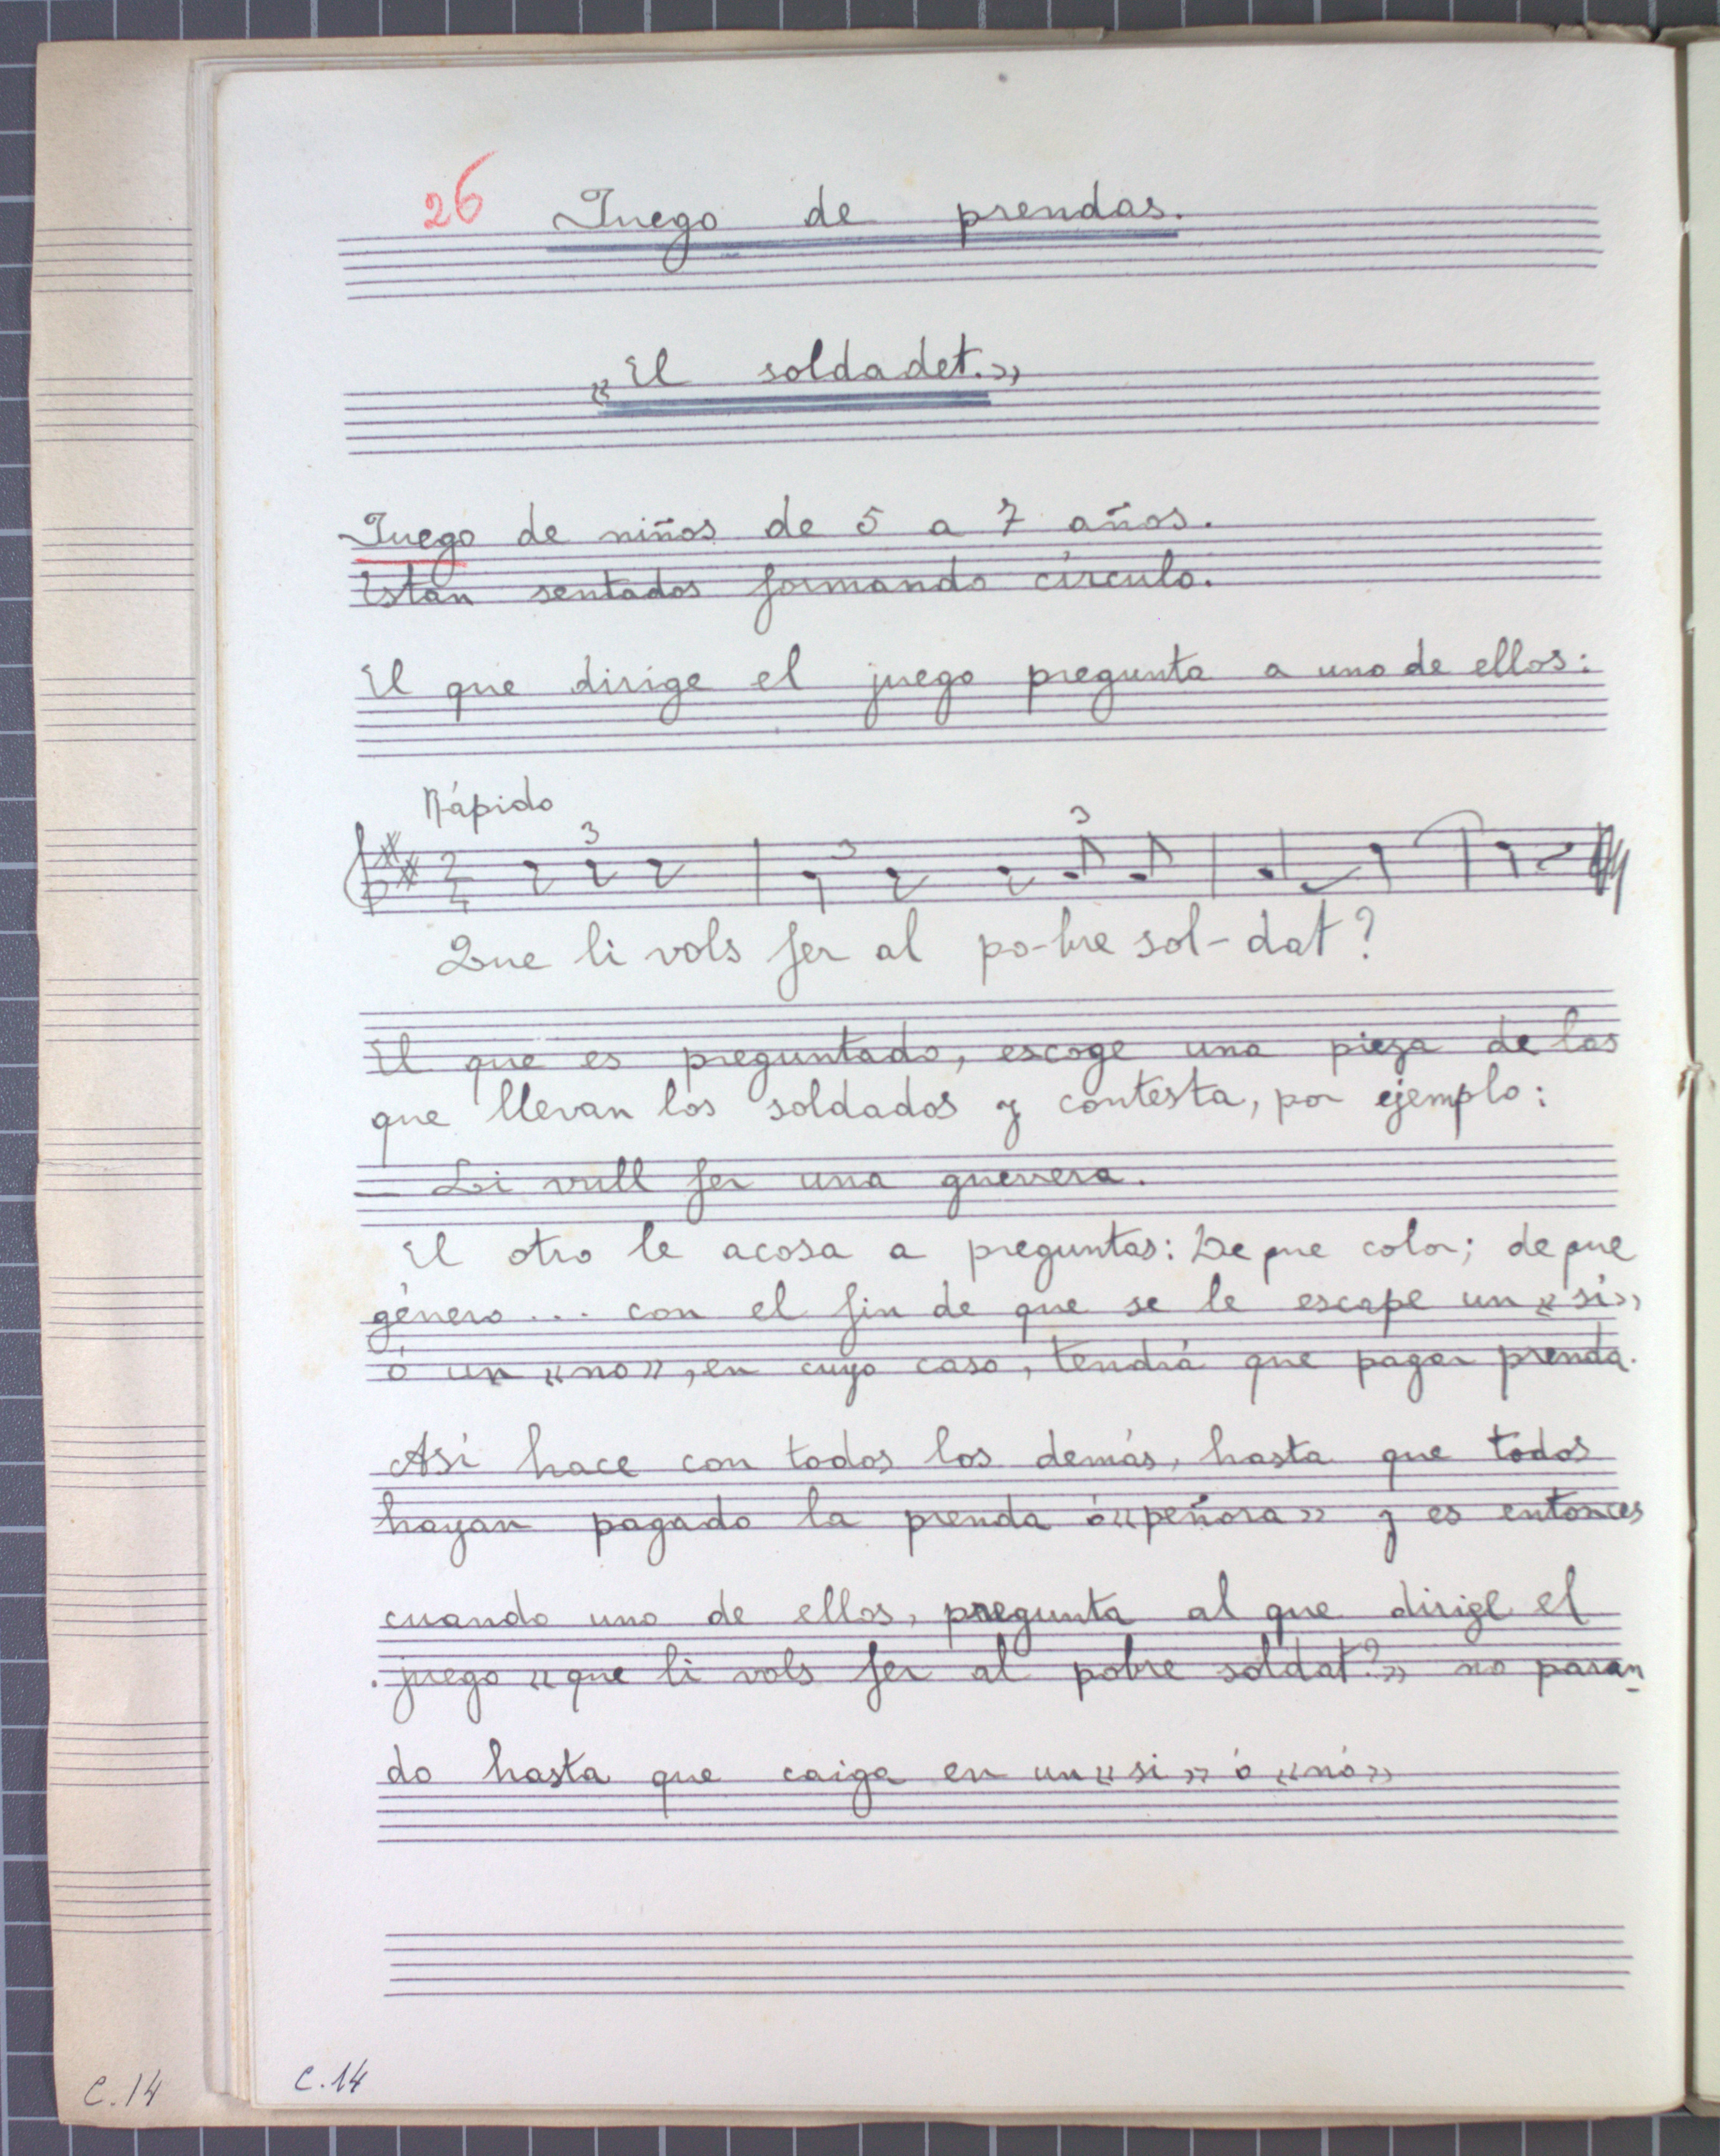 26 Juego de prendas.
«El soldadet.»
Juego de niños de 5 a 7 años.
Están sentados formando círculo.
El que dirige el juego pregunta a uno de ellos:
Rápido
3 3 3
2
4
Que li vols fer al po-bre sol-dat?
El que es preguntado, escoge una pieza de las
que llevan los soldados y contesta, por ejemplo:
- Li vull fer una guerrera.
El otro le acosa a preguntas: De que color; de que
género.... con el fin de que se le escape un «sí»
ó un «no», en cuyo caso, tendrá que pagar prenda.
Así hace con todos los demás, hasta que todos
hayan pagado la prenda ó «peñora» y es entonces
cuando uno de ellos, pregunta al que dirige el
juego «que li vols fer al pobre soldat?» no paran-
do hasta que caiga en un «si» ó «nó»
C.14 C.14